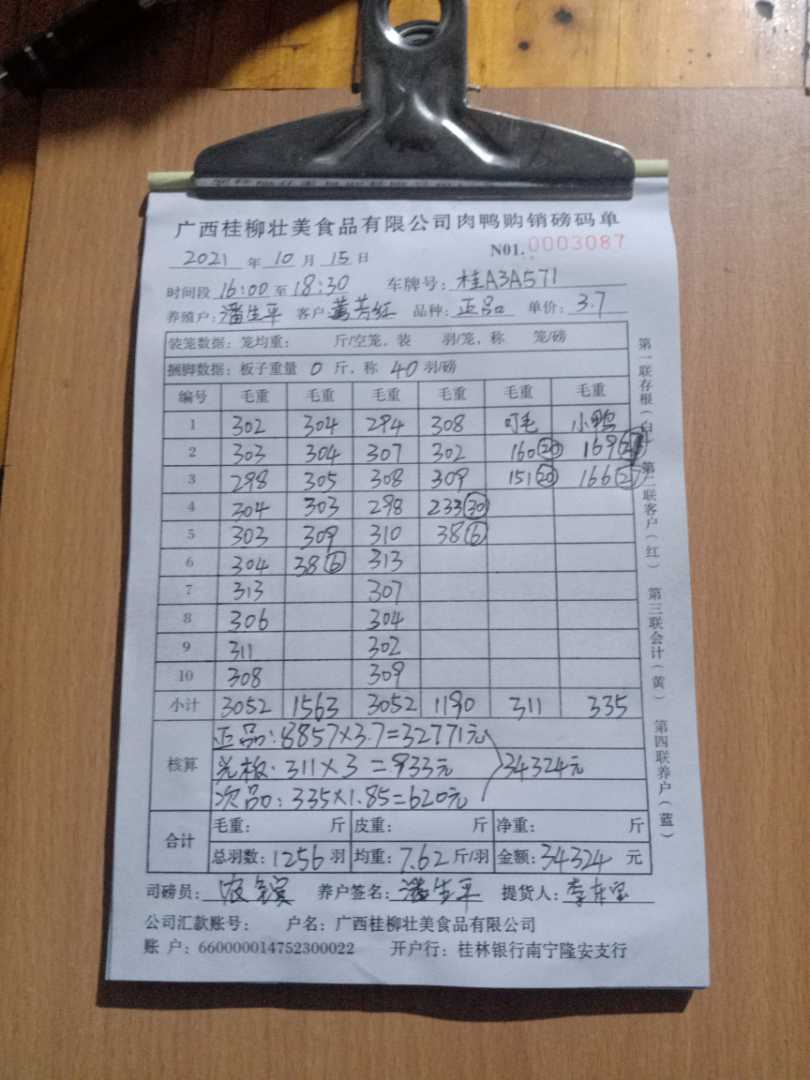 广西桂柳壮美食品有限公司肉鸭购销磅码单
N01. 0003087
2021 年 10 月 15 日
时间段 16:00 至 18:30 车牌号: 桂A3A571
养殖户: 潘生平 客户: 黄芳红 品种: 正品 单价: 3.7
装笼数据: 笼均重: 斤/空笼, 装 羽/笼, 称 笼/磅
捆脚数据: 板子重量 0 斤, 称 40 羽/磅
编号 毛重 毛重 毛重 毛重 毛重 毛重
1 302 304 294 308 叮毛 小鸭
2 303 304 307 302 160(20) 169
3 298 305 308 309 151(20) 166(27)
4 304 303 298 233(30)
5 303 309 310 38(6)
6 304 38(6) 313
7 313 307
8 306 304
9 311 302
10 308 309
小计 3052 1563 3052 1190 311 335
核算
正品: 8857×3.7=32771元
光板: 311×3=933元 34324元
次品: 335×1.85=620元
合计
毛重: 斤 皮重: 斤 净重: 斤
总羽数: 1256 羽 均重: 7.62 斤/羽 金额: 34324 元
司磅员: 养户签名: 潘生平 提货人:
公司汇款账号: 户名: 广西桂柳壮美食品有限公司
账 户: 660000014752300022 开户行: 桂林银行南宁隆安支行
第一联存根(白)
第二联客户(红)
第三联会计(黄)
第四联养户(蓝)